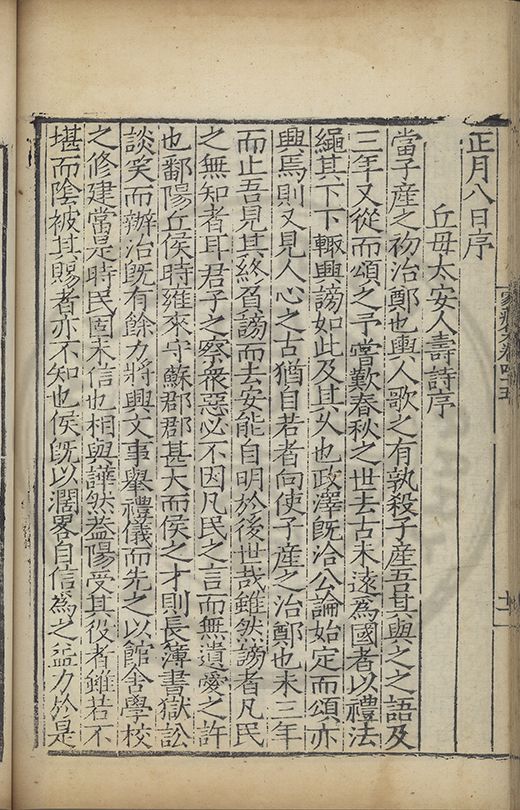 正月八日序
丘母太安人壽詩序
當子産之初治鄭也輿人歌之有孰殺子産吾其與之之語及
三年又從而頌之予嘗歎春秋之世去古未遠為國者以禮法
繩其下下輒興謗如此及其久也政澤旣洽公論始定而頌亦
興焉則又見人心之古猶自若者向使子産之治鄭也未三年
而止吾見其終負謗而去安能自明於後世哉雖然謗者凡民
之無知者耳君子之察衆惡必不因凡民之言而無遺愛之許
也鄱陽丘侯時雍來守蘇郡郡甚大而侯之才則長簿書獄訟
談笑而辦治旣有餘力將興文事舉禮儀而先之以館舍學校
之修建當是時民固未信也相與譁然盖陽受其役者雖若不
堪而陰被其賜者亦不知也侯旣以濶畧自信為之益力於是